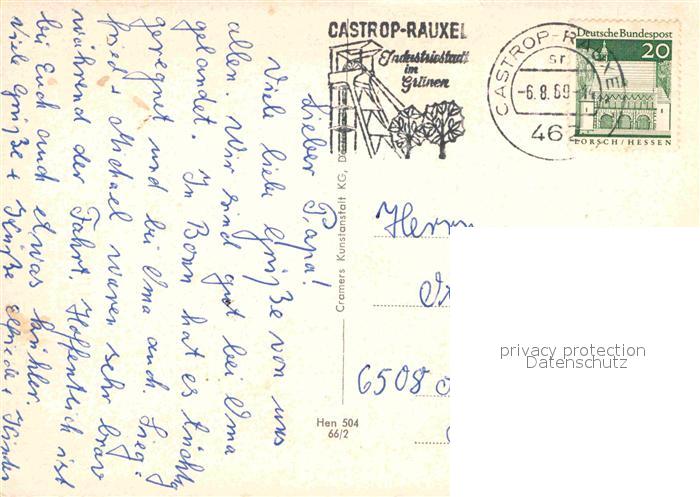 CASTROP-RAUXEL
Industriestadt
im
Grünen
CASTROP-RAUXEL
sr
-6.8.69-14
462
Deutsche Bundespost
20
LORSCH/HESSEN
Lieber Papa!
Viele liebe Grüße von uns
allen. Wir sind gut bei Oma
gelandet. In Bonn hat es tüchtig
geregnet und bei Oma auch. Sieg-
fried + Michael waren sehr brav
während der Fahrt. Hoffentlich ist
bei Euch auch etwas kühler.
Viele Grüße + Küsse Elfriede + Kinder
Cramers Kunstanstalt KG, D
Hen 504
66/2
Herrn
6508
privacy protection
Datenschutz